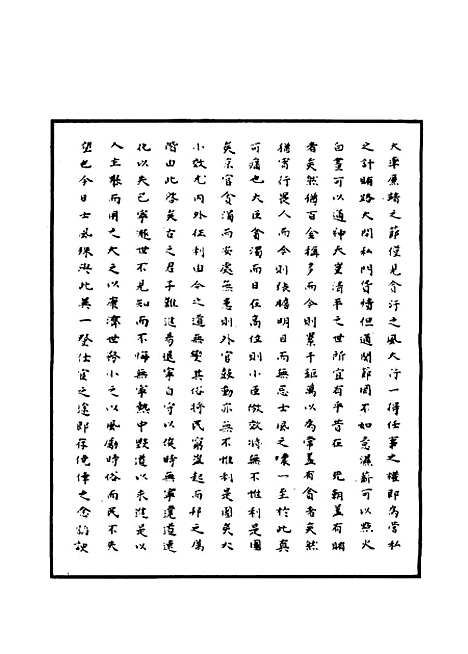 大率廉靖之節僅見貪汙之風大行一得任事之權即為營私
之計賄路大開私門貨情但通關節罔不如意濕薪可以點火
白晝可以通神夫豈清平之世所宜有乎昔在　先朝蓋有賄
者矣然價百金稱多而今則累千鉅萬以為常蓋有貪者矣然
猶畏行畏人而今則張膽明目而無忌士風之壞一至於此真
可痛也大臣貪濁而日在高位則小臣倣效將無不惟利是圖
矣京官貪濁而安處無恙則外官鼓動亦無不惟利是圖矣大
小效尤內外征利由今之道無變其俗將民窮盜起而邦之厲
階由此啓矣古之君子難進易退寧自守以俟時無寧違道速
化以失己寧遯世不見知而不悔無寧熱中躁進以求進是以
人主敬而用之大之以康濟世務小之以風勵時俗而民不失
望也今日士風殊與此異一登仕宦之途即存僥倖之念諂諛